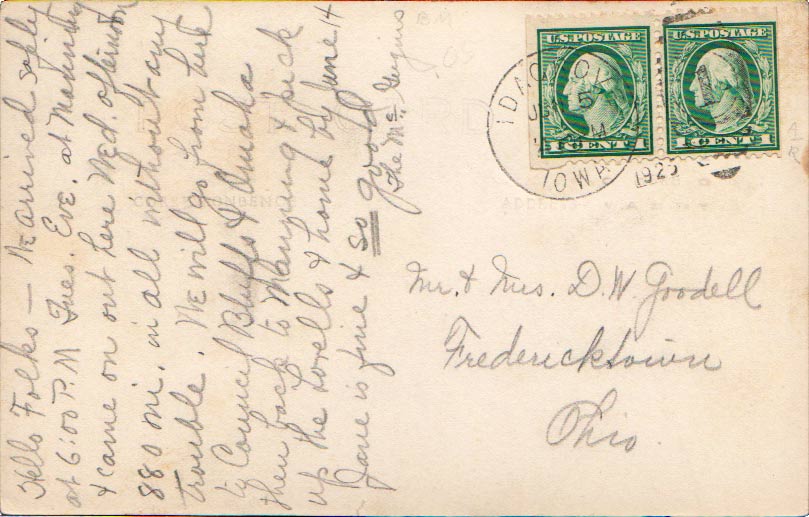 Hello Folks — We arrived safely
at 6:00 P.M Tues. Eve. at Manning
& came on out here Wed. afternoon
880 mi. in all without any
trouble. We will go from here
to Council Bluffs & Omaha
then back to Manning & pick
up the Lovells & home by June 14
Jane is fine & so good
The Mc
U.S. POSTAGE
1 CENT 1
U.S. POSTAGE
1 CENT 1
IDA GROV
5
M
IOWA
192
CORRESPONDENCE
Mr. & Mrs. D. W. Goodell
Fredericktown
Ohio.